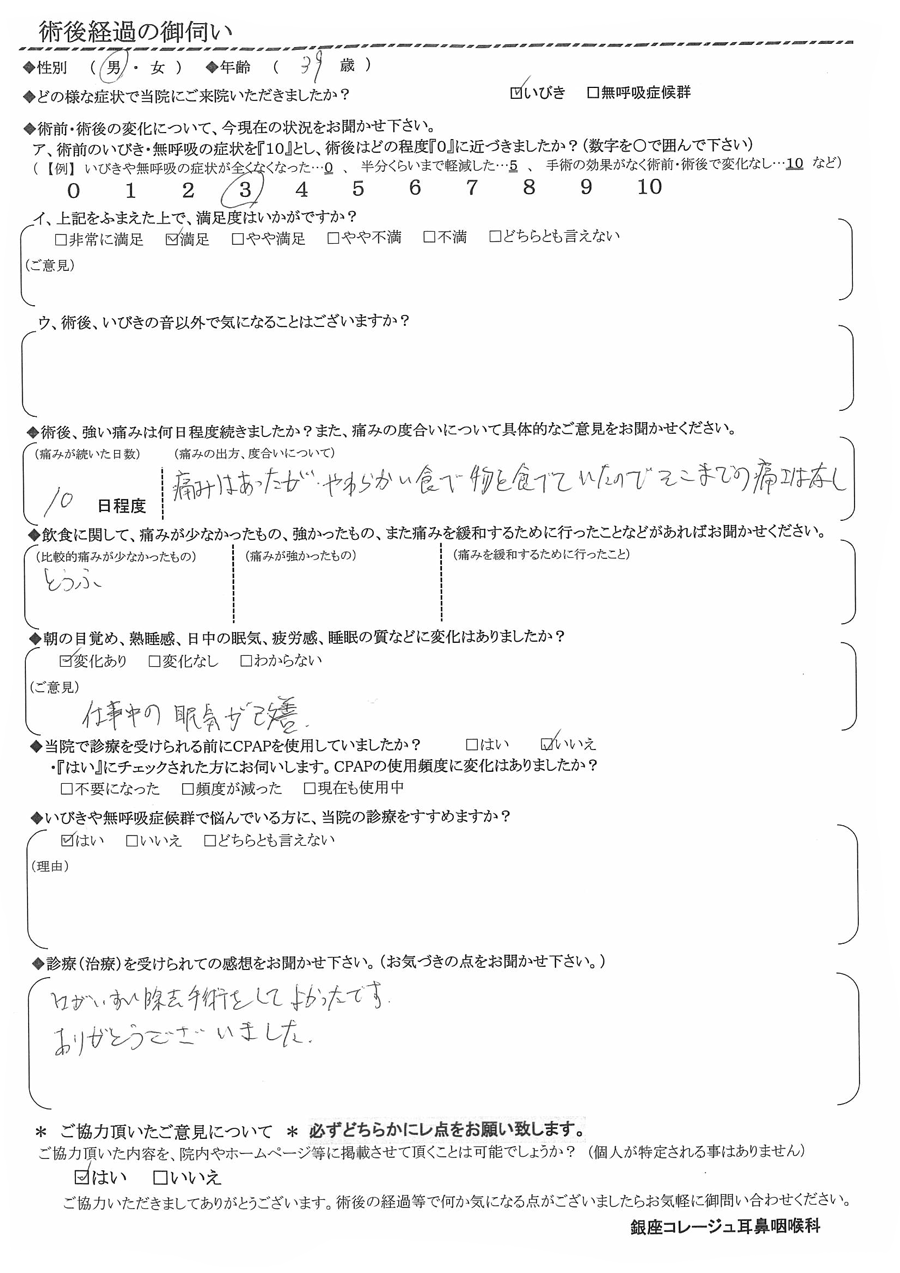 術後経過の御伺い
◆性別 （ 男 ・ 女 ） ◆年齢 （ 39 歳 ）
◆どの様な症状で当院にご来院いただきましたか？ ☑いびき □無呼吸症候群
◆術前・術後の変化について、今現在の状況をお聞かせ下さい。
ア、術前のいびき・無呼吸の症状を『10』とし、術後はどの程度『0』に近づきましたか？（数字を〇で囲んで下さい）
（【例】 いびきや無呼吸の症状が全くなくなった…0 、 半分くらいまで軽減した…5 、 手術の効果がなく術前・術後で変化なし…10 など）
0 1 2 3 4 5 6 7 8 9 10
イ、上記をふまえた上で、満足度はいかがですか？
□非常に満足 ☑満足 □やや満足 □やや不満 □不満 □どちらとも言えない
（ご意見）
ウ、術後、いびきの音以外で気になることはございますか？
◆術後、強い痛みは何日程度続きましたか？また、痛みの度合いについて具体的なご意見をお聞かせください。
（痛みが続いた日数） （痛みの出方、度合いについて）
10 日程度 痛みはあったが、やわらかい食べ物を食べていたのでそこまでの痛みはなし
◆飲食に関して、痛みが少なかったもの、強かったもの、また痛みを緩和するために行ったことなどがあればお聞かせください。
（比較的痛みが少なかったもの） （痛みが強かったもの） （痛みを緩和するために行ったこと）
とうふ
◆朝の目覚め、熟睡感、日中の眠気、疲労感、睡眠の質などに変化はありましたか？
☑変化あり □変化なし □わからない
（ご意見）
仕事中の眠気が改善.
◆当院で診療を受けられる前にCPAPを使用していましたか？ □はい ☑いいえ
・『はい』にチェックされた方にお伺いします。CPAPの使用頻度に変化はありましたか？
□不要になった □頻度が減った □現在も使用中
◆いびきや無呼吸症候群で悩んでいる方に、当院の診療をすすめますか？
☑はい □いいえ □どちらとも言えない
（理由）
◆診療（治療）を受けられての感想をお聞かせ下さい。（お気づきの点をお聞かせ下さい。）
口がいすい除去手術をしてよかったです.
ありがとうございました.
＊ ご協力頂いたご意見について ＊ 必ずどちらかにレ点をお願い致します。
ご協力頂いた内容を、院内やホームページ等に掲載させて頂くことは可能でしょうか？ （個人が特定される事はありません）
☑はい □いいえ
ご協力いただきましてありがとうございます。術後の経過等で何か気になる点がございましたらお気軽に御問い合わせください。
銀座コレージュ耳鼻咽喉科